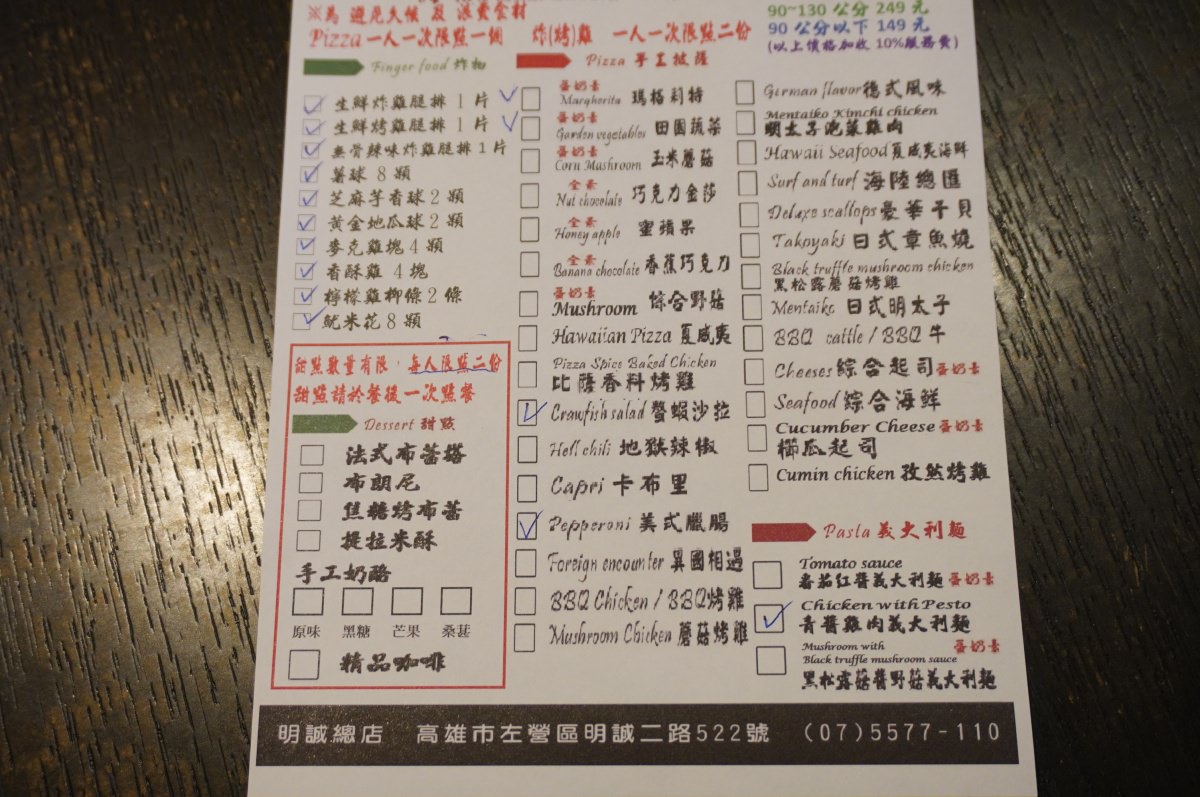 ※為 避免久候 及 浪費食材
Pizza 一人一次限點一個 炸(烤)雞 一人一次限點二份
90~130 公分 249 元
90 公分以下 149 元
(以上價格加收 10%服務費)
Finger food 炸物
生鮮炸雞腿排 1 片
生鮮烤雞腿排 1 片
無骨辣味炸雞腿排 1 片
薯球 8 顆
芝麻芋香球 2 顆
黃金地瓜球 2 顆
麥克雞塊 4 顆
香酥雞 4 塊
檸檬雞柳條 2 條
魷米花 8 顆
甜點數量有限，每人限點二份
甜點請於餐後一次點餐
Dessert 甜點
法式布蕾塔
布朗尼
焦糖烤布蕾
提拉米酥
手工奶酪
原味 黑糖 芒果 桑葚
精品咖啡
Pizza 手工披薩
蛋奶素
Margherita 瑪格莉特
蛋奶素
Garden vegetables 田園蔬菜
蛋奶素
Corn Mushroom 玉米蘑菇
全素
Nut chocolate 巧克力金莎
全素
Honey apple 蜜蘋果
全素
Banana chocolate 香蕉巧克力
蛋奶素
Mushroom 綜合野菇
Hawaiian Pizza 夏威夷
Pizza Spice Baked Chicken
比薩香料烤雞
Crawfish salad 螯蝦沙拉
Hell chili 地獄辣椒
Capri 卡布里
Pepperoni 美式臘腸
Foreign encounter 異國相遇
BBQ Chicken / BBQ烤雞
Mushroom Chicken 蘑菇烤雞
German flavor 德式風味
Mentaiko Kimchi chicken
明太子泡菜雞肉
Hawaii Seafood 夏威夷海鮮
Surf and turf 海陸總匯
Deluxe scallops 豪華干貝
Takoyaki 日式章魚燒
Black truffle mushroom chicken
黑松露蘑菇烤雞
Mentaiko 日式明太子
BBQ cattle / BBQ 牛
Cheeses 綜合起司 蛋奶素
Seafood 綜合海鮮
Cucumber Cheese 蛋奶素
櫛瓜起司
Cumin chicken 孜然烤雞
Pasta 義大利麵
Tomato sauce
番茄紅醬義大利麵 蛋奶素
Chicken with Pesto
青醬雞肉義大利麵
Mushroom with 蛋奶素
Black truffle mushroom sauce
黑松露菇醬野菇義大利麵
明誠總店 高雄市左營區明誠二路522號 (07)5577-110